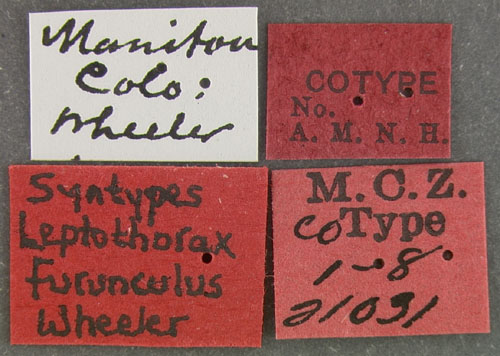 Manitou
Colo:
Wheeler
COTYPE
No.
A. M. N. H.
Syntypes
Leptothorax
furunculus
Wheeler
M. C. Z.
coType
1-8
21031